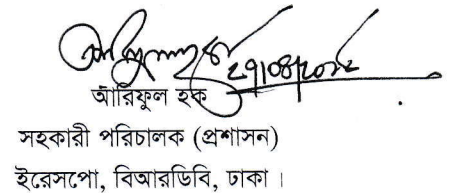 ২৭/০৪/২০২২
আরিফুল হক
সহকারী পরিচালক (প্রশাসন)
ইরেসপো, বিআরডিবি, ঢাকা ।